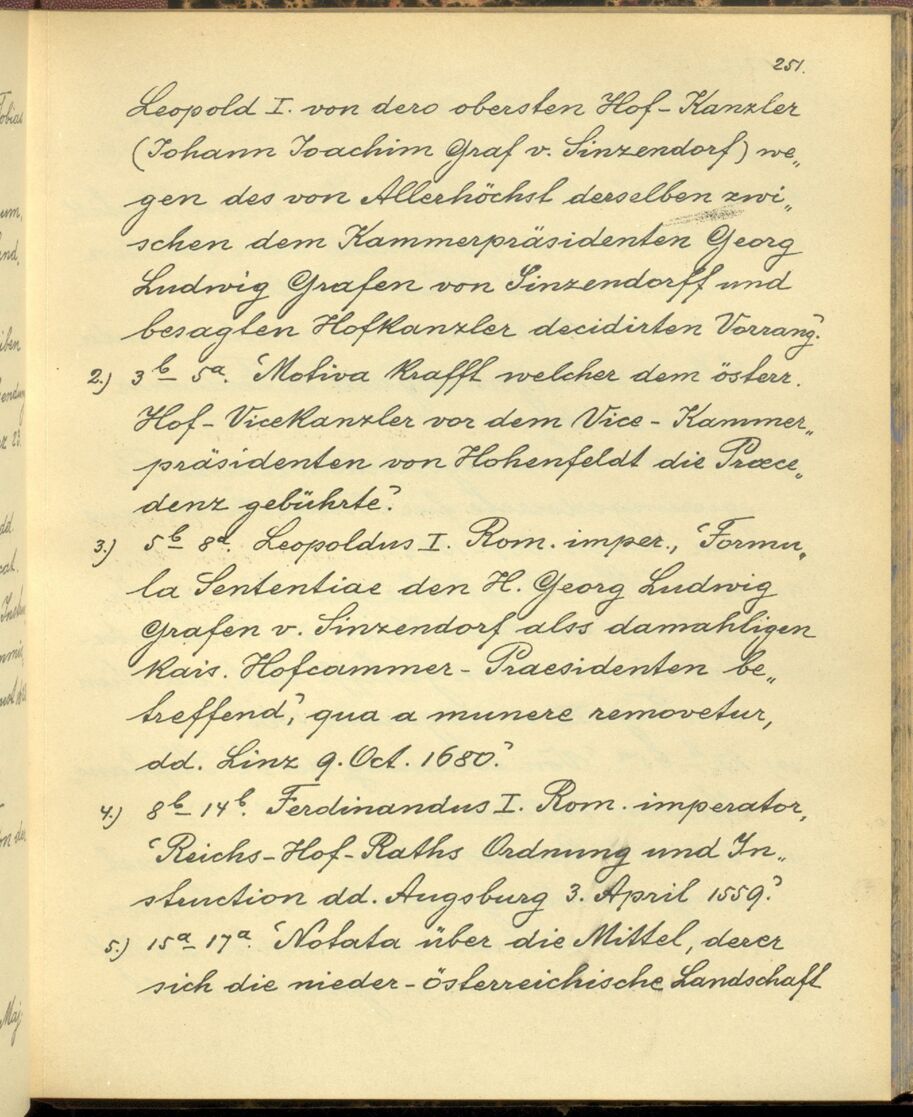 251.
Leopold I. von dero obersten Hof-Kanzler
(Johann Joachim Graf v. Sinzendorf) we„
gen des von Allerhöchst derselben zwi„
schen dem Kammerpräsidenten Georg
Ludwig Grafen von Sinzendorff und
besagten Hofkanzler decidirten Vorrang'.
2.) 3b–5a. 'Motiva krafft welcher dem österr.
Hof-Vicekanzler vor dem Vice-Kammer„
präsidenten von Hohenfeldt die Præce„
denz gebührte'.
3.) 5b–8a. Leopoldus I. Rom. imper., 'Formu„
la Sententiae den H. Georg Ludwig
Grafen v. Sinzendorf alss damahligen
kais. Hofcammer-Praesidenten be„
treffend', qua a munere removetur,
dd. Linz 9. Oct. 1680'.
4.) 8b–14b. Ferdinandus I. Rom. imperator,
'Reichs-Hof-Raths Ordnung und In„
struction dd. Augsburg 3. April 1559'.
5.) 15a–17a. 'Notata über die Mittel, derer
sich die nieder-österreichische Landschaft